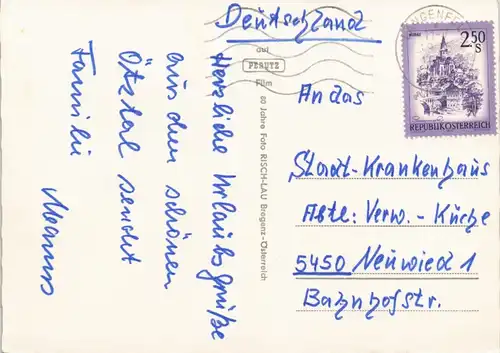 Deutschland
Herzliche Urlaubsgrüße
aus dem schönen
Ötztal sendet
Familie
An das
Stadt-Krankenhaus
Abtl: Verw.-Küche
5450 Neuwied 1
Bahnhofstr.
auf
PERUTZ
Film
60 Jahre Foto RISCH-LAU Bregenz-Österreich
2.50
S
REPUBLIK ÖSTERREICH